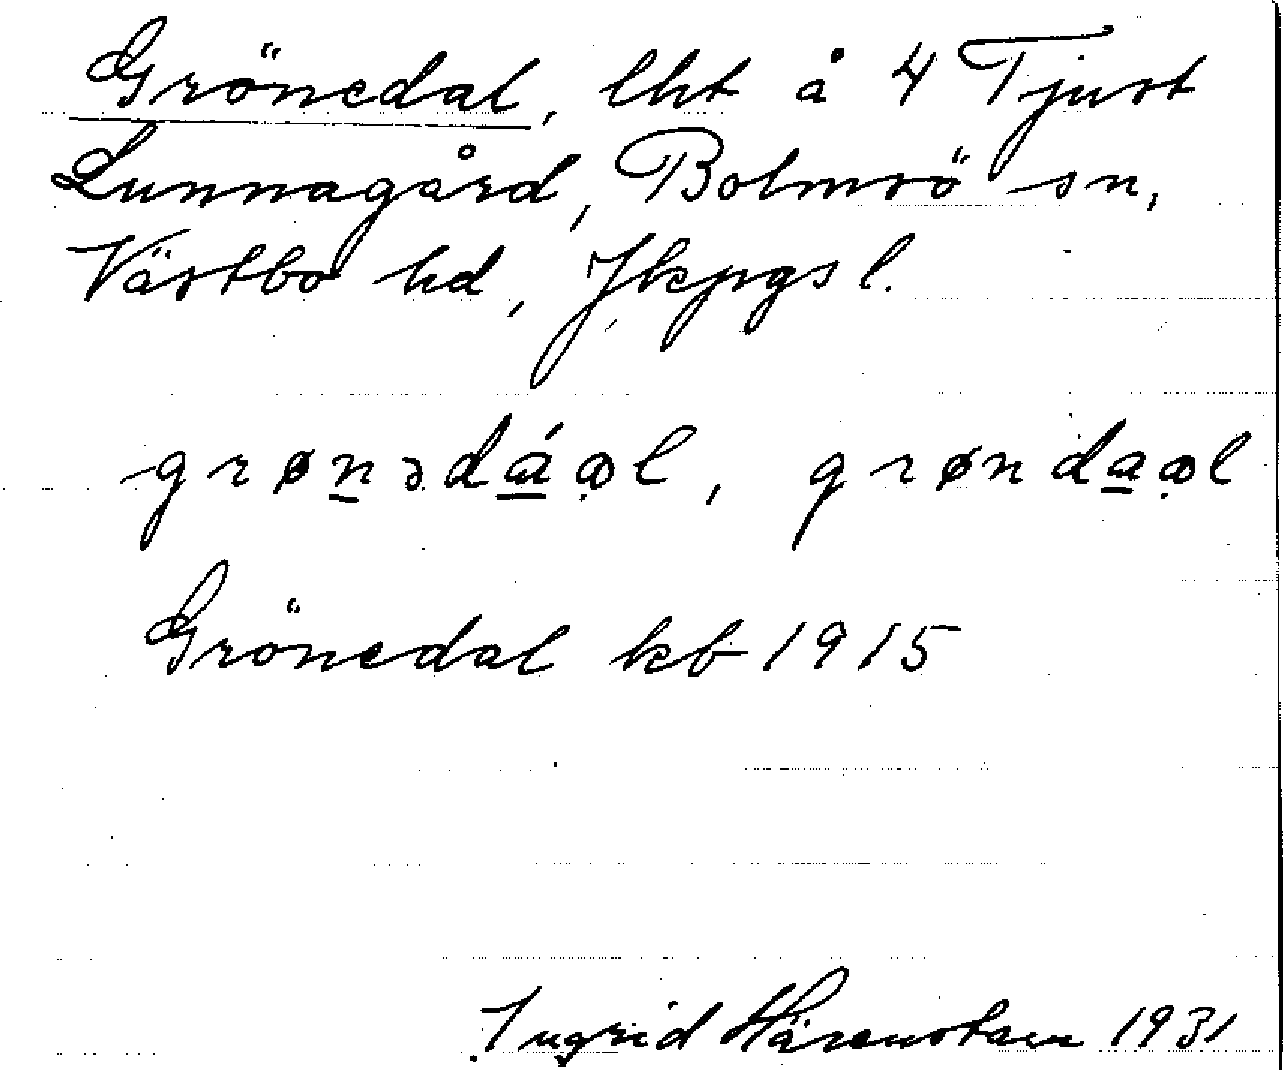 Grönedal, lht å 4 Tjust
Lunnagård, Bolmsö sn,
Västbo hd, Jkpgs l.
grønədáɷl, grøndaɷl
Grönedal kb 1915
Ingrid Härenstam 1931